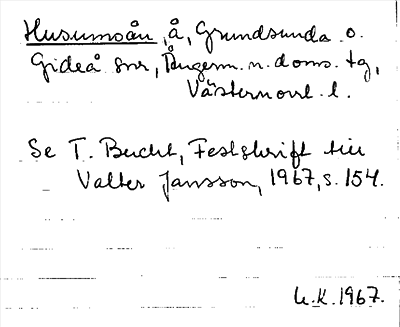 Husumoån, å, Grundsunda o.
Gideå snr, Ångerm. n. doms. tg,
Västernorrl. l.
Se T. Bucht, Festskrift till
Valter Jansson, 1967, s. 154.
U.K. 1967.